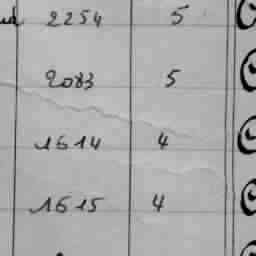 2254 5
2083 5
1614 4
1615 4